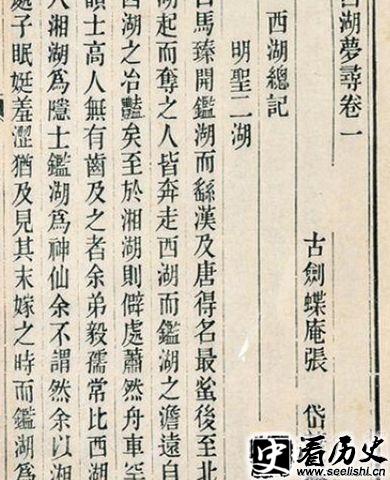 西湖夢尋卷一
古劍蝶庵張 岱
西湖總記
明聖二湖
自馬臻開鑑湖而繇漢及唐得名最蚤後至北
湖起而奪之人皆奔走西湖而鑑湖之澹遠自
西湖之冶豔矣至於湘湖則僻處蕭然舟車罕
韻士高人無有齒及之者余弟毅孺常比西湖
人湘湖爲隱士鑑湖爲神仙余不謂然余以湘
處子眠娗羞澀猶及見其未嫁之時而鑑湖爲
史看历史
www.seelishi.cn